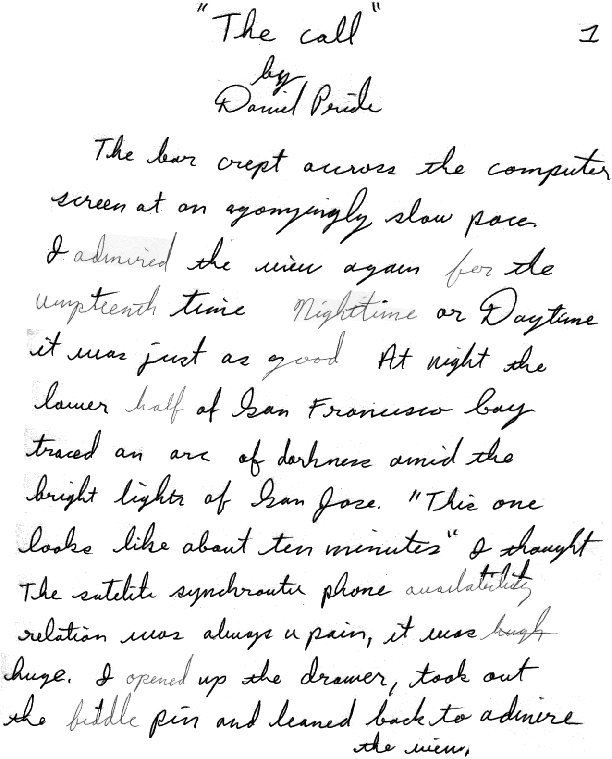 "The call" 1
by
Daniel Pride
The bar crept across the computer
screen at an agonyingly slow pace.
I admired the view again for the
umpteenth time Nighttime or Daytime
it was just as good At night the
lower half of San Francisco bay
traced an arc of darkness amid the
bright lights of San Jose. "This one
looks like about ten minutes" I thought
The satelite synchrouter phone availatibility
relation was always a pain, it was hugh
huge. I opened up the drawer, took out
the fiddle pin and leaned back to admire
the view.